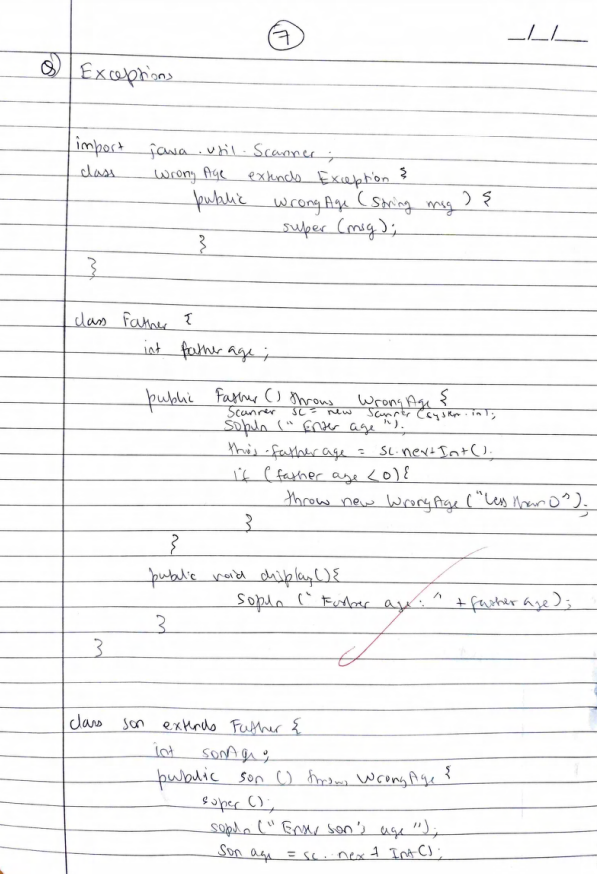 7
_/_/_
Q) Exceptions
import java.util.Scanner;
class WrongAge extends Exception {
public WrongAge (String msg) {
super (msg);
}
}
class Father {
int father age;
public Father () throws WrongAge {
Scanner sc = new Scanner (System.in);
sopln (" Enter age ");
this.father age = sc.nextInt();
if (father age < 0){
throw new WrongAge ("less than 0");
}
}
public void display(){
sopln (" Father age: " + father age);
}
}
class son extends Father {
int sonAge;
public son () throws WrongAge {
super ();
sopln (" Enter son's age ");
Son age = sc.nextInt();